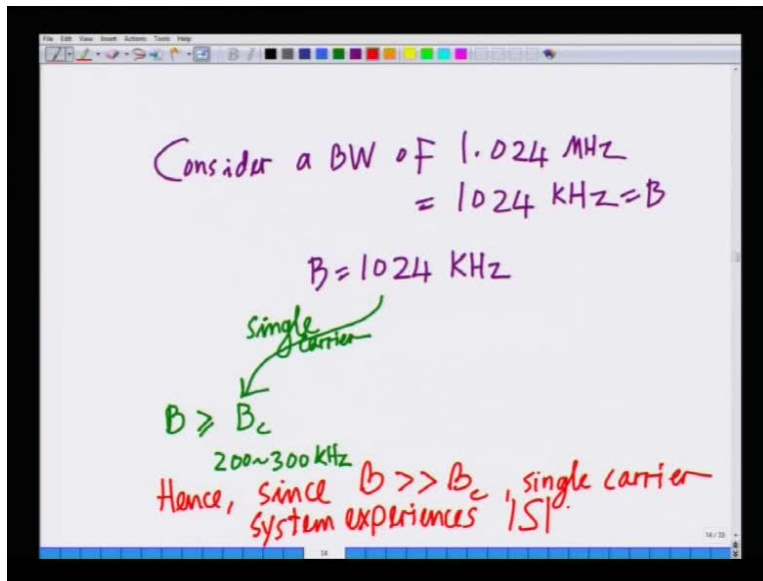 File Edit View Insert Actions Tools Help
Consider a BW of 1.024 MHz
= 1024 KHz = B
B = 1024 KHz
single
carrier
B ≥ Bc
200~300 kHz
Hence, since B >> Bc, single carrier
system experiences ISI.
14 / 35
14